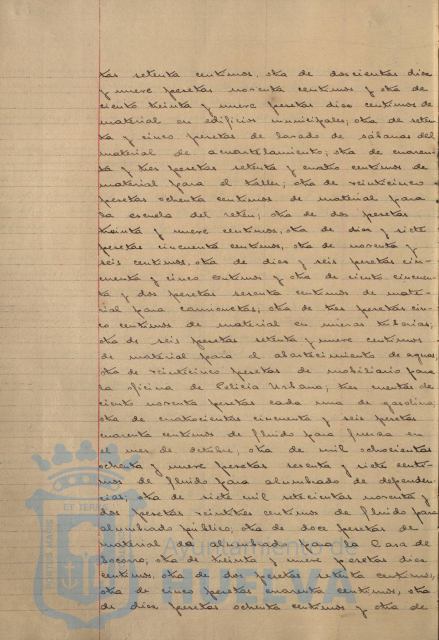 tas setenta centimos, otra de doscientas diez
y nueve pesetas noventa centimos y otra de
ciento treinta y nueve pesetas diez centimos de
material en edificios municipales; otra de seten
ta y cinco pesetas de lavado de sábanas del
material de acuartelamiento; otra de cuaren
ta y tres pesetas setenta y cuatro centimos de
material para el taller; otra de veinticinco
pesetas ochenta centimos de material para
la escuela del reten; otra de dos pesetas
treinta y nueve centimos, otra de diez y siete
pesetas cincuenta centimos, otra de noventa y
seis centimos, otra de diez y seis pesetas cin-
cuenta y cinco centimos y otra de ciento cincuen
ta y dos pesetas sesenta centimos de mate-
rial para camionetas; otra de tres pesetas cin-
co centimos de material en nuevas tuberias;
otra de seis pesetas setenta y nueve centimos
de material para el abastecimiento de aguas,
otra de veinticinco pesetas de mobiliario para
la oficina de Policia Urbana; tres cuentas de
ciento noventa pesetas cada una de gasolina;
otra de cuatrocientas cincuenta y seis pesetas
cuarenta centimos de fluido para fuerza en
el mes de Octubre, otra de mil ochocientas
ochenta y nueve pesetas sesenta y siete centi-
mos de fluido para alumbrado de dependen
cias; otra de siete mil setecientas noventa y
dos pesetas veintitres centimos de fluido para
alumbrado público; otra de doce pesetas de
material de alumbrado para la Casa de
Socorro; otra de treinta y nueve pesetas diez
centimos, otra de dos pesetas setenta centimos,
otra de cinco pesetas cuarenta centimos, otra
de diez pesetas ochenta centimos y otra de
Ayuntamiento de
HUELVA